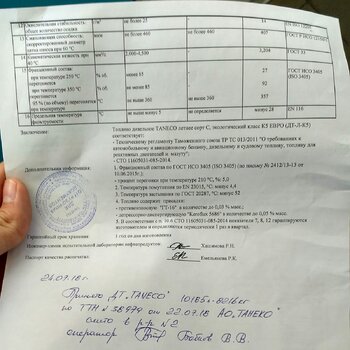 12 Окислительная стабильность: г/м³ не более 25 14 EN ISO 12205
общее количество осадка
13 Смазывающая способность: мкм не более 460 не более 460 405 ГОСТ Р ИСО 12156-1
скорректированный диаметр
пятна износа при 60 °С
14 Кинематическая вязкость при мм²/с 2,000-4,500 3,208 ГОСТ 33
40 °С
15 Фракционный состав: ГОСТ ИСО 3405
при температуре 250 °С % об. менее 65 27 (ISO 3405)
перегоняется
при температуре 350 °С % об. не менее 85 92
перегоняется
95 % (по объему) перегоняется °С не выше 360 357
при температуре
16 Предельная температура °С не выше минус 5 не определяется минус 28 EN 116
фильтруемости
Заключение: Топливо дизельное TANECO летнее сорт С, экологический класс К5 ЕВРО (ДТ-Л-К5)
- Техническому регламенту Таможенного союза ТР ТС 013/2011 "О требованиях к
автомобильному и авиационному бензину, дизельному и судовому топливу, топливу для
реактивных двигателей и мазуту".
- СТО 11605031-085-2014.
Дополнительная информация: 1. Фракционный состав по ГОСТ ИСО 3405 (ISO 3405) (по письму № 2412/13-13 от
10.06.2015г.):
- процент перегонки при температуре 210 °С, %: 5,0
2. Температура помутнения по EN 23015, °С: минус 4,4
3. Температура застывания по ГОСТ 20287, °С: минус 32
4. Топливо содержит присадки:
количестве до 0,05 % масс.;
"Keroflux 5686" в количестве до 0,05 % масс.
7, 8, 12 гарантируются
изготовителем и определяются периодически 1 раз в квартал.
Гарантийный срок хранения: 1 год со дня изготовления
Инженер-химик испытательной лаборатории нефтепродуктов: Хисамова Р.Н.
Паспорт качества рассчитал: Емельянова Р.К.
24.07.18г
Принято ДТ "TANECO" 10185л-8216кг
по ТТН № 38979 от 22.07.18 АО "ТАНЕКО"
слито в р-р № 2
оператор Бобков В.В.